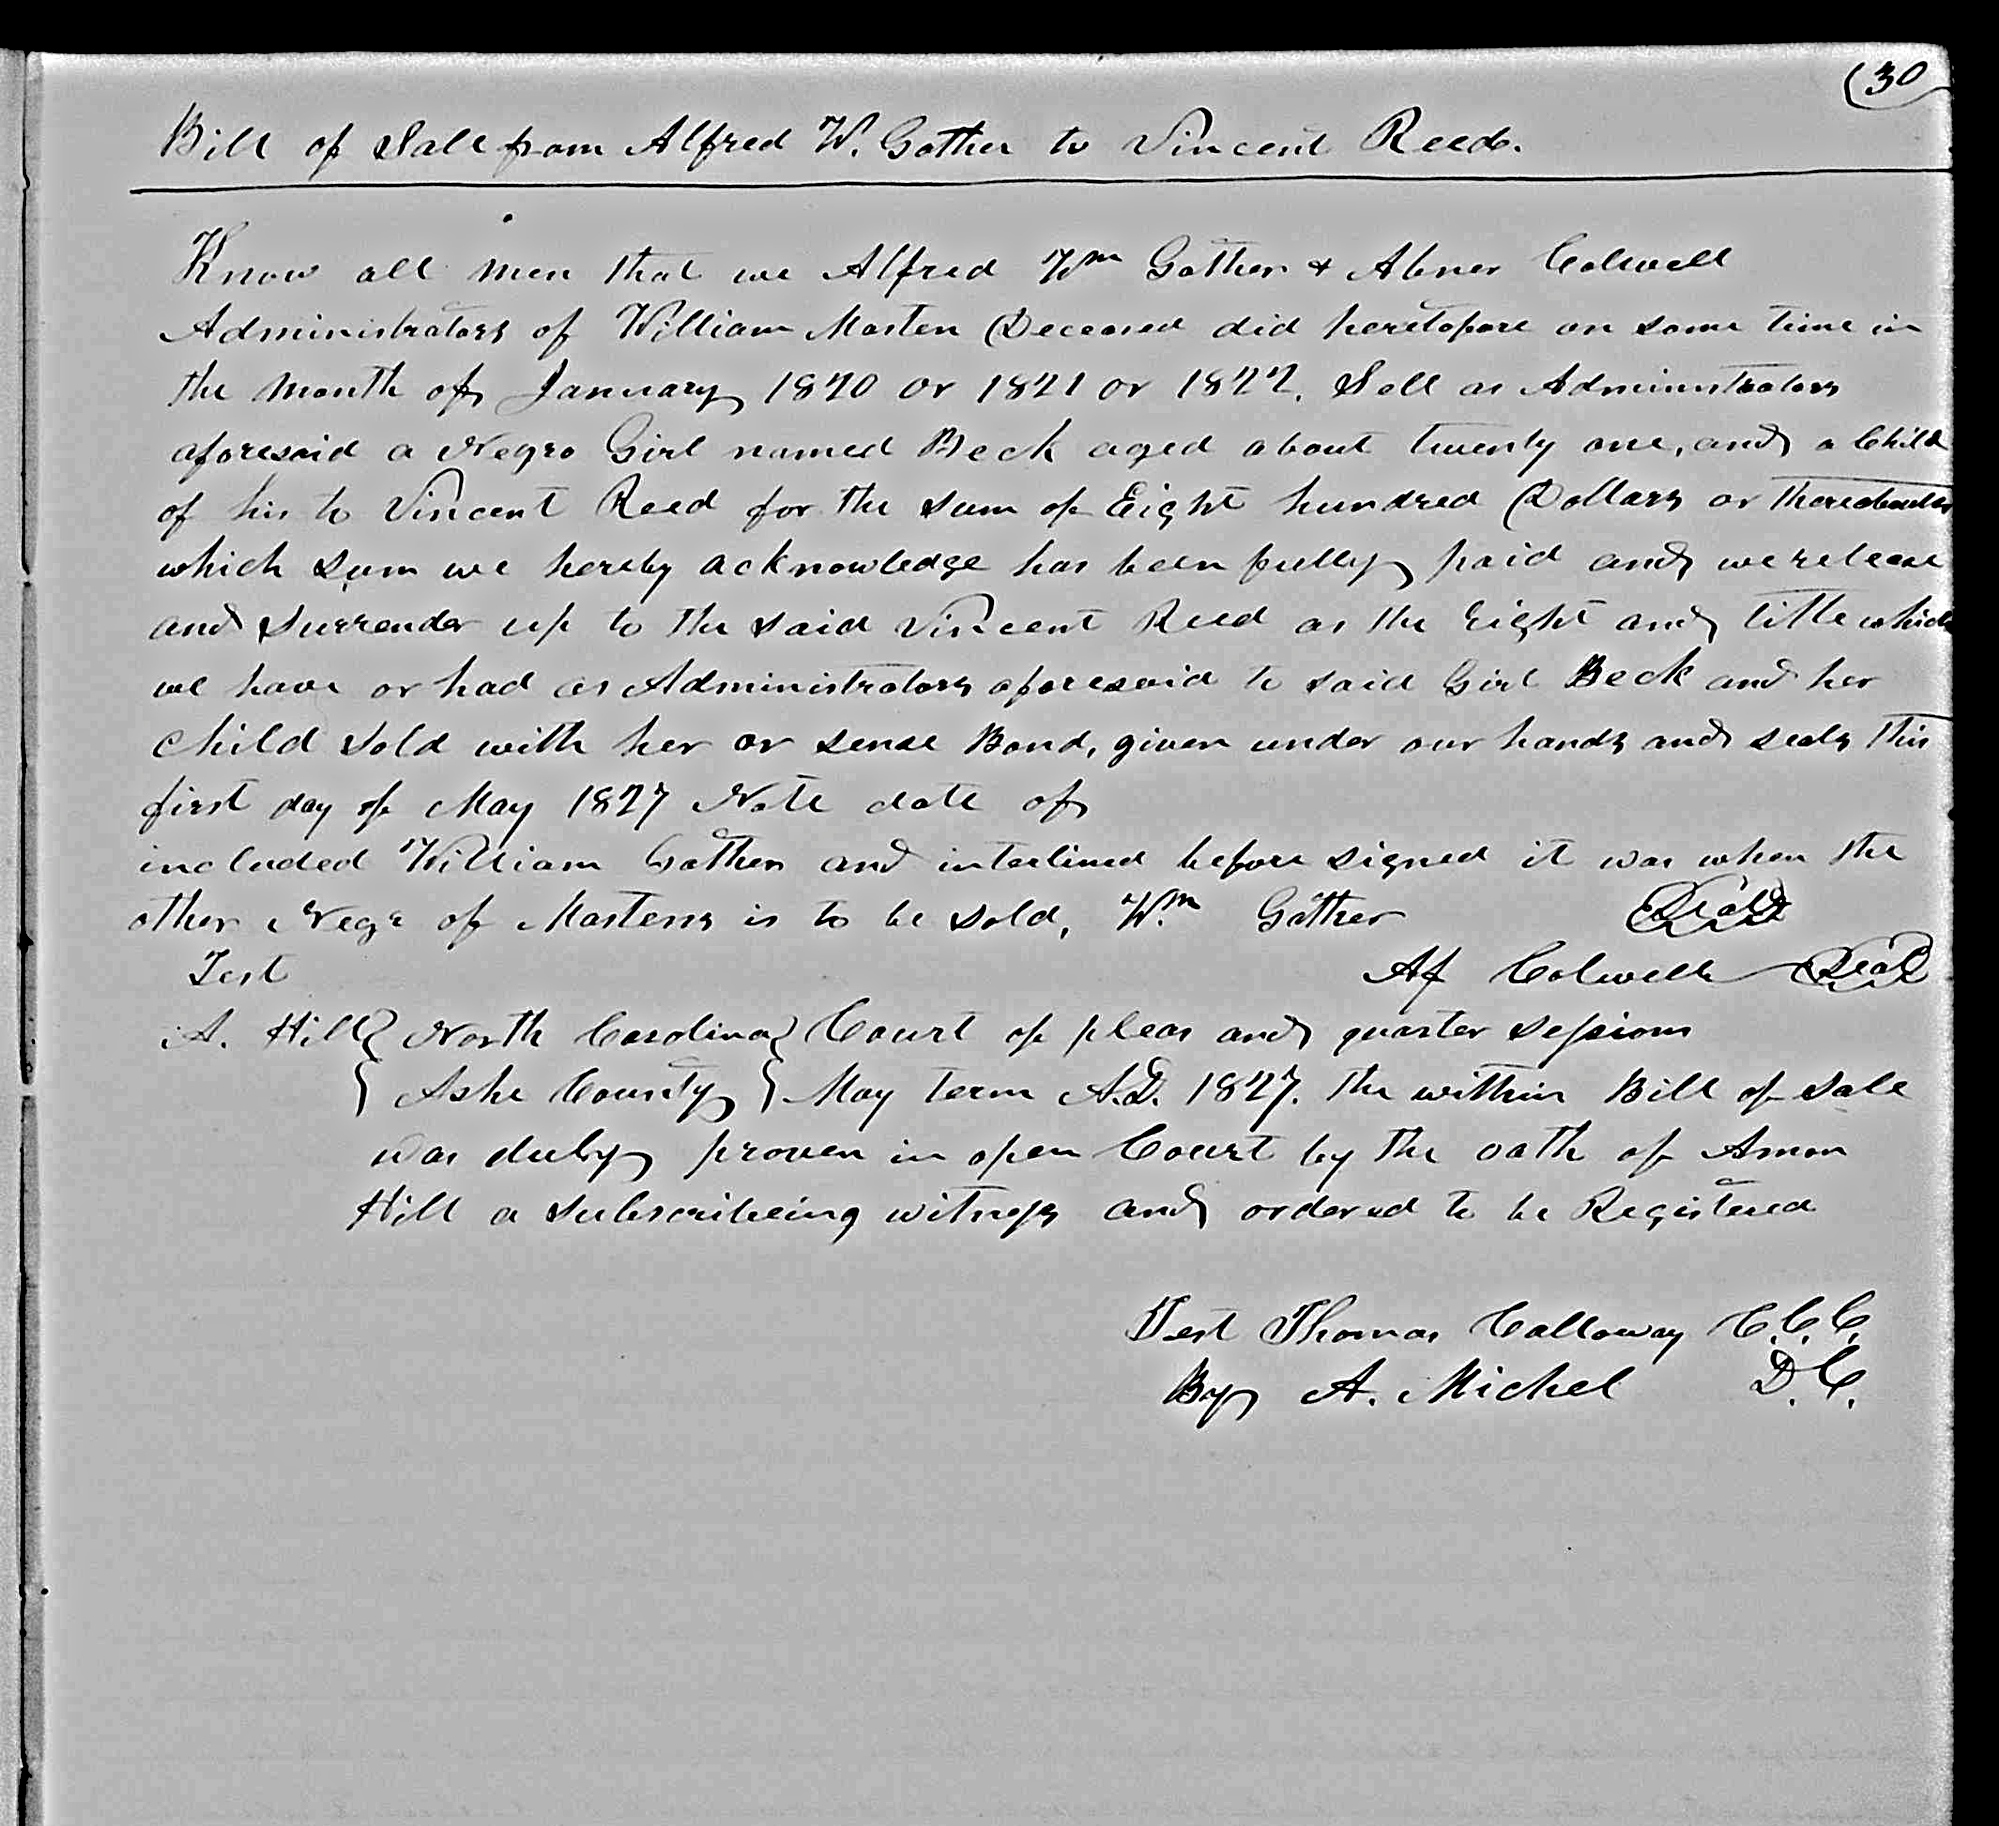 (30
Bill of Sale from Alfred W. Gather to Vincent Reed.
Know all men that we Alfred Wm Gather & Abner Colwell
Administrators of William Masten Deceased did heretofore on some time in
the month of January 1820 or 1821 or 1822. Sell as Administrators
aforesaid a Negro Girl named Beck aged about twenty one, and a Child
of his to Vincent Reed for the sum of Eight hundred Dollars or thereabouts
which sum we hereby acknowledge has been fully paid and we release
and surrender up to the said Vincent Reed as the Eight and title which
we have or had as Administrators aforesaid to said Girl Beck and her
child sold with her or sense Bond, given under our hands and seals this
first day of May 1827 Note date of
included William Gather and interlined before signed it was when the
other Negr of Mastens is to be sold, Wm. Gather Seal
Test Af Colwell Seal
A. Hill North Carolina Court of pleas and quarter sessions
Ashe County May term A.D. 1827. The within Bill of Sale
was duly proven in open Court by the oath of Amon
Hill a subscribeing witness and ordered to be Registered
Test Thomas Calloway C.C.C.
By A. Michel D.C.